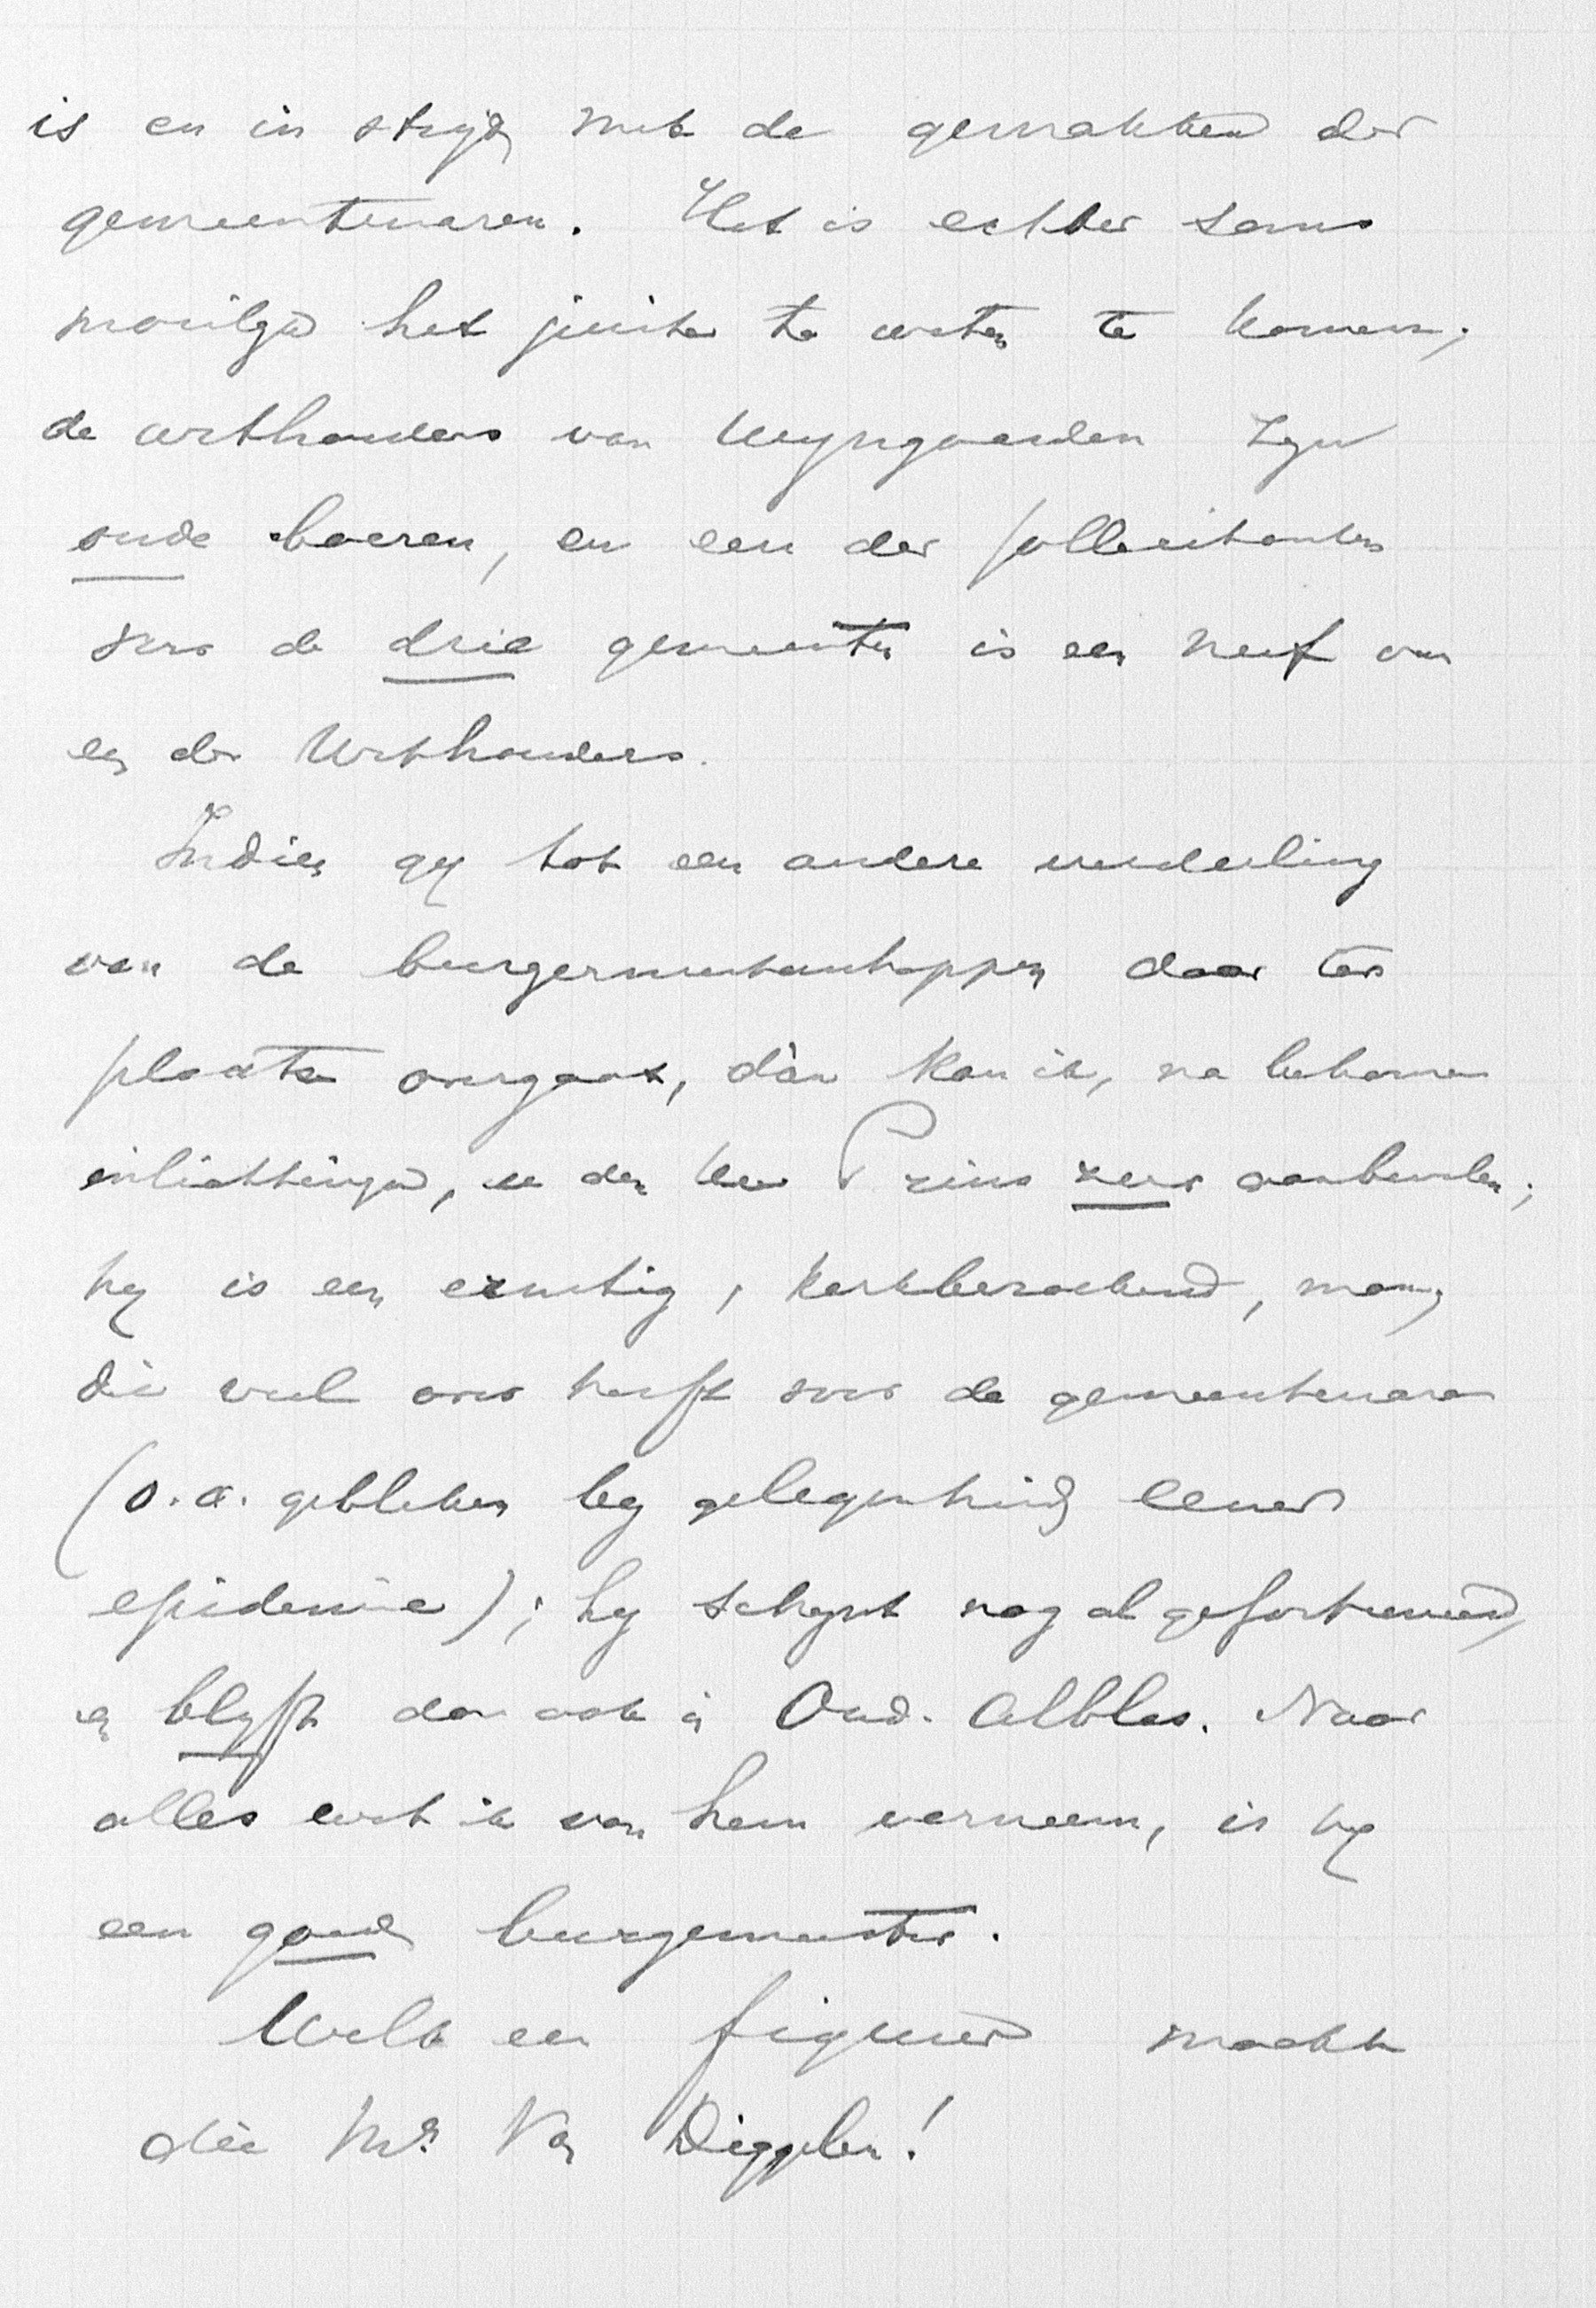 is en in strijd met de gemakken der
gemeentenaren. Het is echter soms
moeilijk het juiste te weten te komen;
de wethouders van Wijngaarden zijn
oude boeren, en een der sollicitanten
voor de drie gemeenten is een neef van
een der Wethouders.
Indien gij tot een andere verdeeling
van de burgemeesterschappen daar ter
plaatse overgaat, dàn kan ik, na bekomen
inlichtingen, u den Heer Prins zeer aanbevelen;
hij is een ernstig, kerkbezoekend, man,
die veel over heeft voor de gemeentenaren
(o.a. gebleken bij gelegenheid eener
epidemie); hij schijnt nog al gefortuneerd,
en blijft dan ook in Oud-Alblas. Naar
alles wat ik van hem verneem, is hij
een goed burgemeester.
Welk een figuur maakt
die Mr. Van Diggelen!